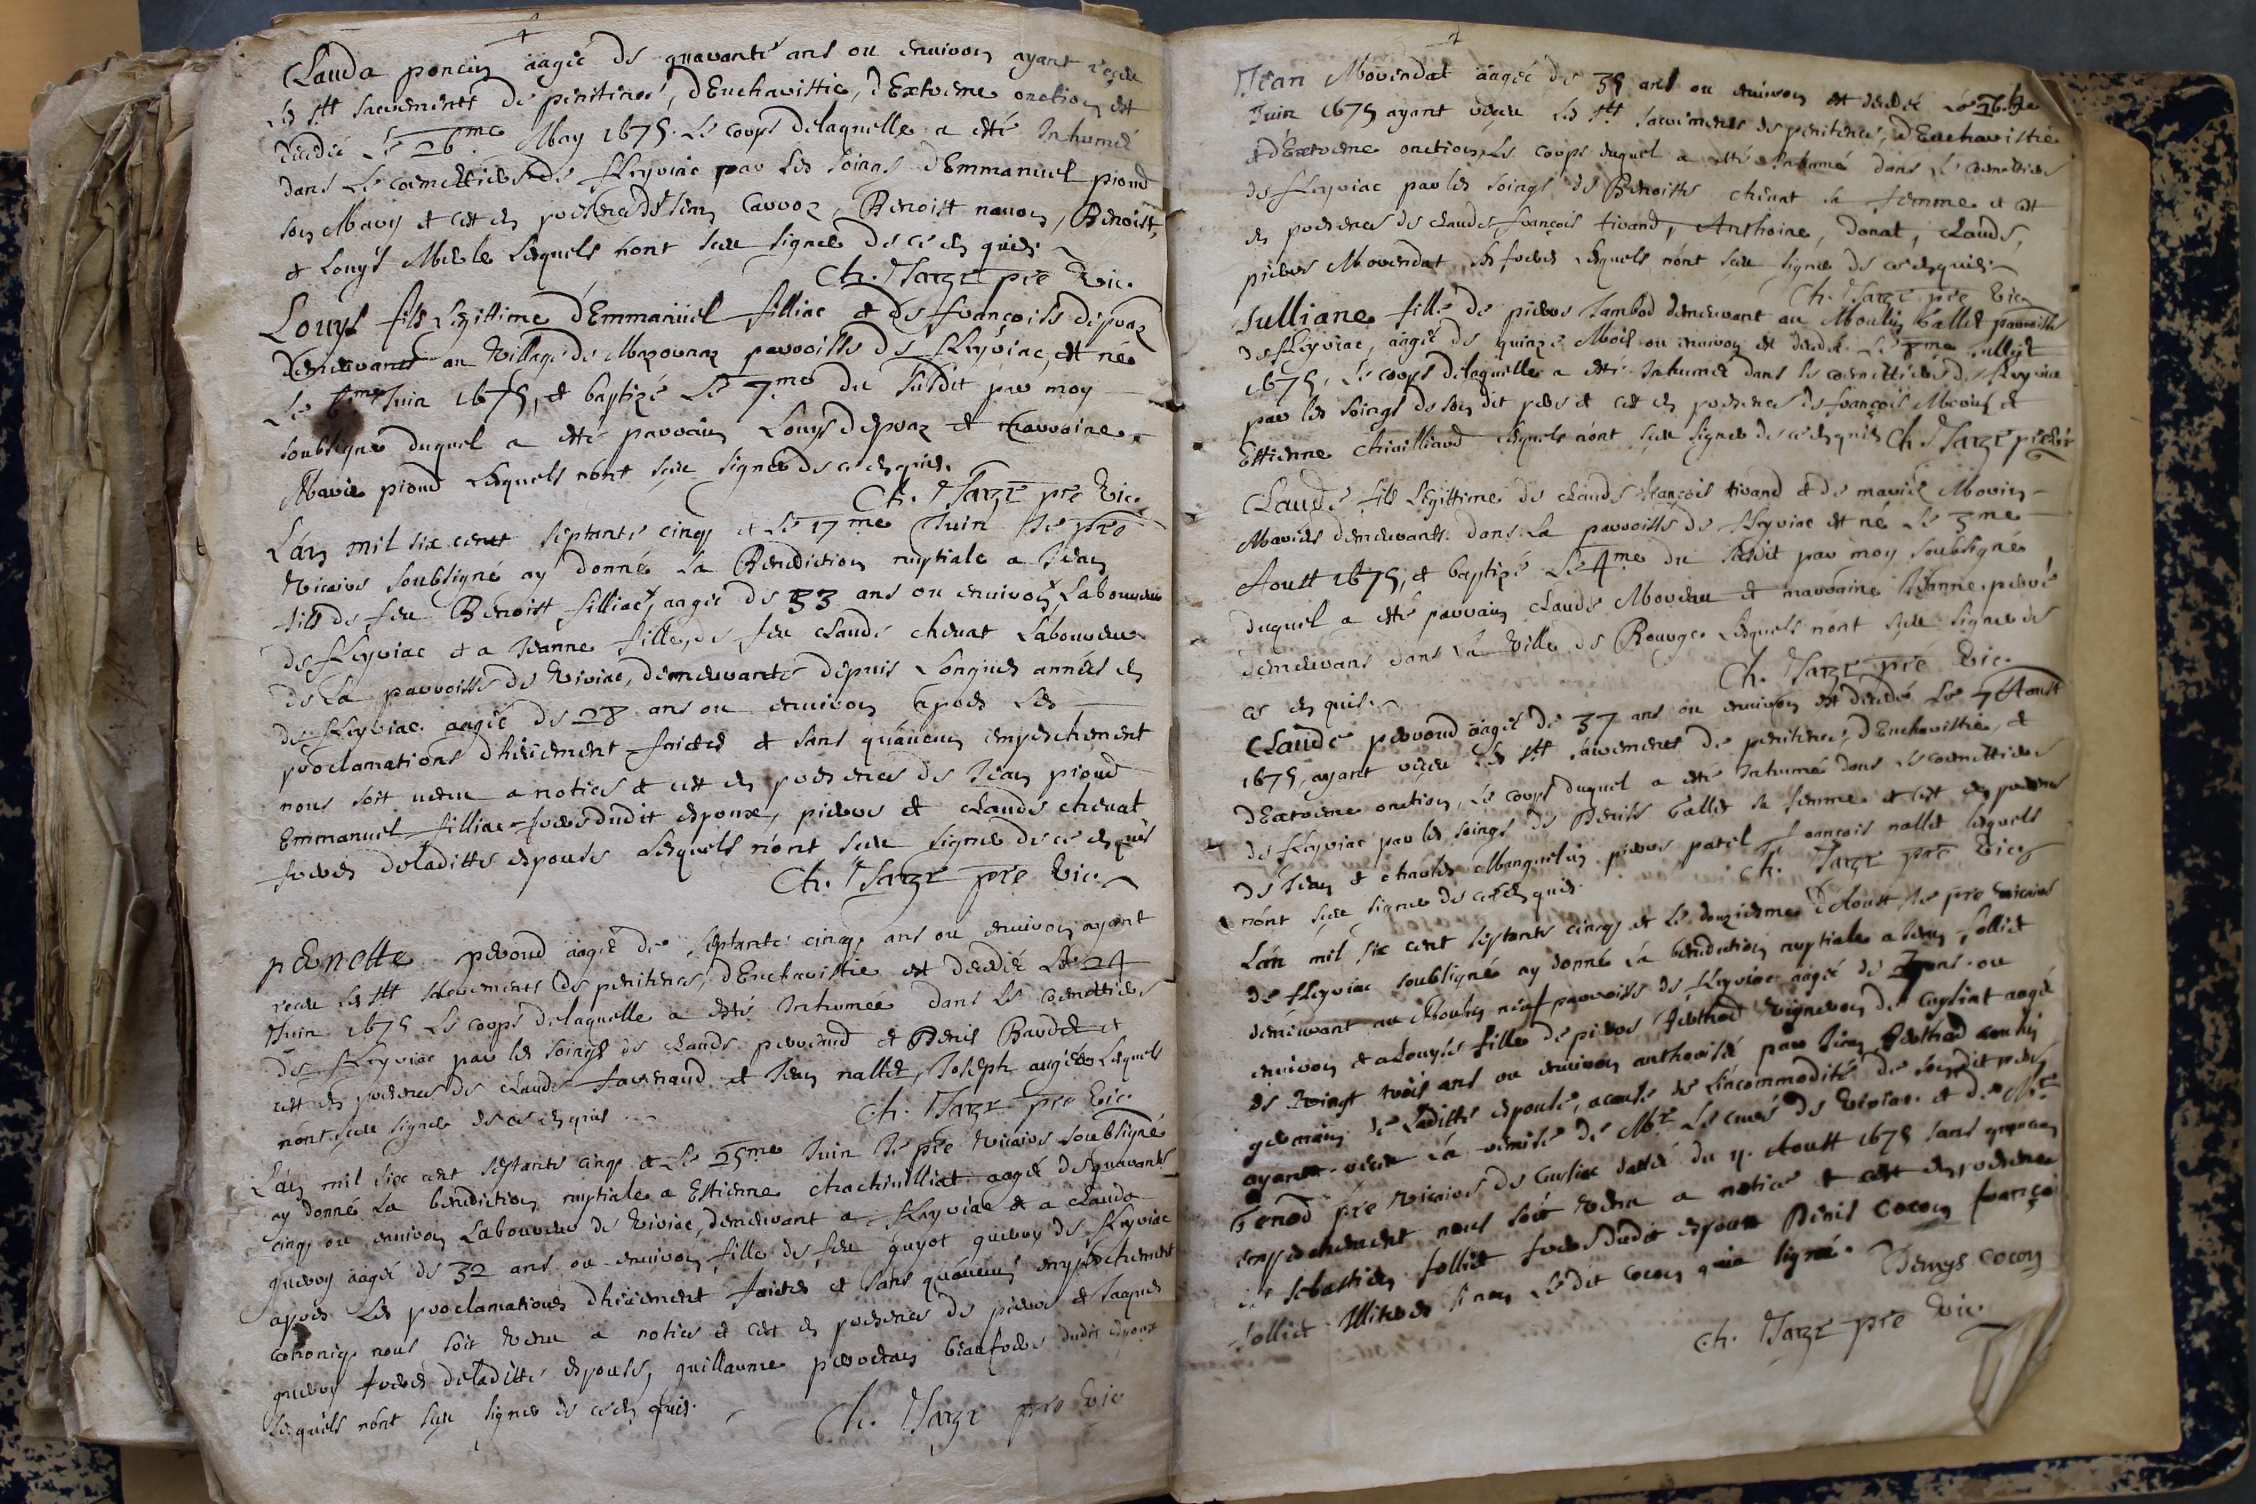 Clauda poncin äagée de quarante ans ou environ ayant reçeu
les sts sacrements de penitence, d'Eucharistie, d'Extreme onction est
decedée Le 26me May 1675. Le corps delaquelle a esté Inhumé
dans Le coemettiere de fleyriac par les soings d'Emmanuel pioud
son Mary et cest en presence de Jean Carroz, Benoist, Benoist,
et Louys Merle Lesquels n'ont sceu signer de ce enquis
Ch. Sarze pre vic.
Louys fils Legittime d'Emmanuel filliac et de françoise depraz
demeurants au village de Mazournaz parroisse de fleyriac, est né
Le 6me Juin 1675, et baptizé Le 7me du susdit par moy
soubsigné duquel a esté parrain Louys depraz et marraine
Marie pioud Lesquels n'ont sceu signer de ce enquis.
Ch. Sarze pre vic.
L'an mil six cent septante cinq et Le 17me Juin Je pre
vicaire soubsigné ay donné La Benediction nuptiale a Jean
fils de feu Benoist filliac, aagé de 33 ans ou environ, Laboureur
de fleyriac et a Jeanne fille de feu claude chevat Laboureur
de La parroisse de viriac, demeurante depuis Longues années en
de fleyriac aagée de 28 ans ou environ apres Les
proclamations d'hüement faictes et sans qu'aucun empeschement
nous soit venu a notice et cest en presence de Jean pioud
Emmanuel filliac frere dudit espoux, pierre et claude chevat
freres deladitte espouse Lesquels n'ont sceu signer de ce enquis
Ch. Sarze pre vic.
pernette peroud aagée de septante cinq ans ou environ ayant
receu les sts sacrements de penitence, d'Eucharistie est decedée Le 24
Juin 1675 Le corps delaquelle a esté Inhumée dans Le coemettiere
de fleyriac par les soings de claude perroud et Denis Baudet et
cest en presence de claude favraud et Jean nallet, Joseph augier Lesquels
n'ont sceu signer de ce enquis
Ch. Sarze pre vic.
L'an mil six cent septante cinq et Le 25me Juin Je pre vicaire soubsigné
ay donné La benediction nuptiale a Estienne chachuilliat aagé de quarante
cinq ou environ Laboureur de viriac, demeurant a fleyriac et a clauda
quevoy aagée de 32 ans ou environ fille de feu guyot quevoy de fleyriac
apres Les proclamations d'hüement faictes et sans qu'aucun empeschement
canonique nous soit venu a notice et cest en presence de pierre et Jaques
quevoy freres deladitte espouse, guillaume perodin beaufrere dudit espoux
Lesquels n'ont sceu signer de ce enquis.
Ch. Sarze pre vic
Jean Morendat aagé de 35 ans ou environ est decedé Le 26
Juin 1675 ayant reçeu Les sts sacrements de penitence, d'Eucharistie
et d'Extreme onction, Le corps duquel a esté Inhumé dans Le coemettiere
de fleyriac par les soings de Benoiste chevat sa femme et cest
en presence de claude françois tirand, Anthoine, Donat, claude,
pierre Morendat ses freres Lesquels n'ont sceu signer de ce enquis
Ch. Sarze pre vic.
Julliane fille de pierre Jambod demeurant au Moulin ballet parroisse
de fleyriac, aagée de quinze Mois ou environ est decedée Le 8me Jullet
1675, Le corps delaquelle a esté Inhumée dans Le coemettiere de fleyriac
par les soings de son dit pere et cest en presence de françois et
Estienne chivilliard Lesquels n'ont sceu signer de ce enquis Ch. Sarze pre vic
Claude fils Legittime de claude françois tirand et de marie Morin
Mariés demeurants dans La parroisse de fleyriac est né Le 3me
Aoust 1675, et baptizé Le 4me du susdit par moy soubsigné
duquel a esté parrain claude Moreau et marraine Jeanne perré
demeurans dans La ville de Bourge Lesquels n'ont sceu signer de
ce enquis.
Ch. Sarze pre vic.
Claude perroud aagé de 37 ans ou environ est decedé Le 7 Aoust
1675, ayant reçeu Les sts sacrements de penitence, d'Eucharistie, et
d'Extreme onction, Le corps duquel a esté Inhumé dans Le coemettiere
de fleyriac par les soings de Denise ballet sa femme et cest en presence
de Jean et charles Manguelin pierre patel françois nallet lesquels
n'ont sceu signer de ce enquis
Ch. Sarze pre vic.
L'an mil six cent septante cinq et Le douziesme d'Aoust Je pre vicaire
de fleyriac soubsigné ay donné La benediction nuptiale a Jean folliet
demeurant au Moulin neuf parroisse de fleyriac aagé de ans ou
environ et a Louyse fille de pierre vigneron de Cusliat aagée
de vingt trois ans ou environ authorisée par Jean cousin
germain de Laditte espouse, a cause de L'incommodité de son dit pere
ayant reçeu La remise de Mr Le curé de viriac et de Mre
benod pre vicaire de Cusliac dattée du 11. Aoust 1675 sans qu'aucun
empeschement nous soit venu a notice et cest en presence
de sebastien folliet frere dudit espoux Denis Cocon françois
folliet Illiterés sinon Ledit cocon qui a signé. Denys Cocon
Ch. Sarze pre vic.